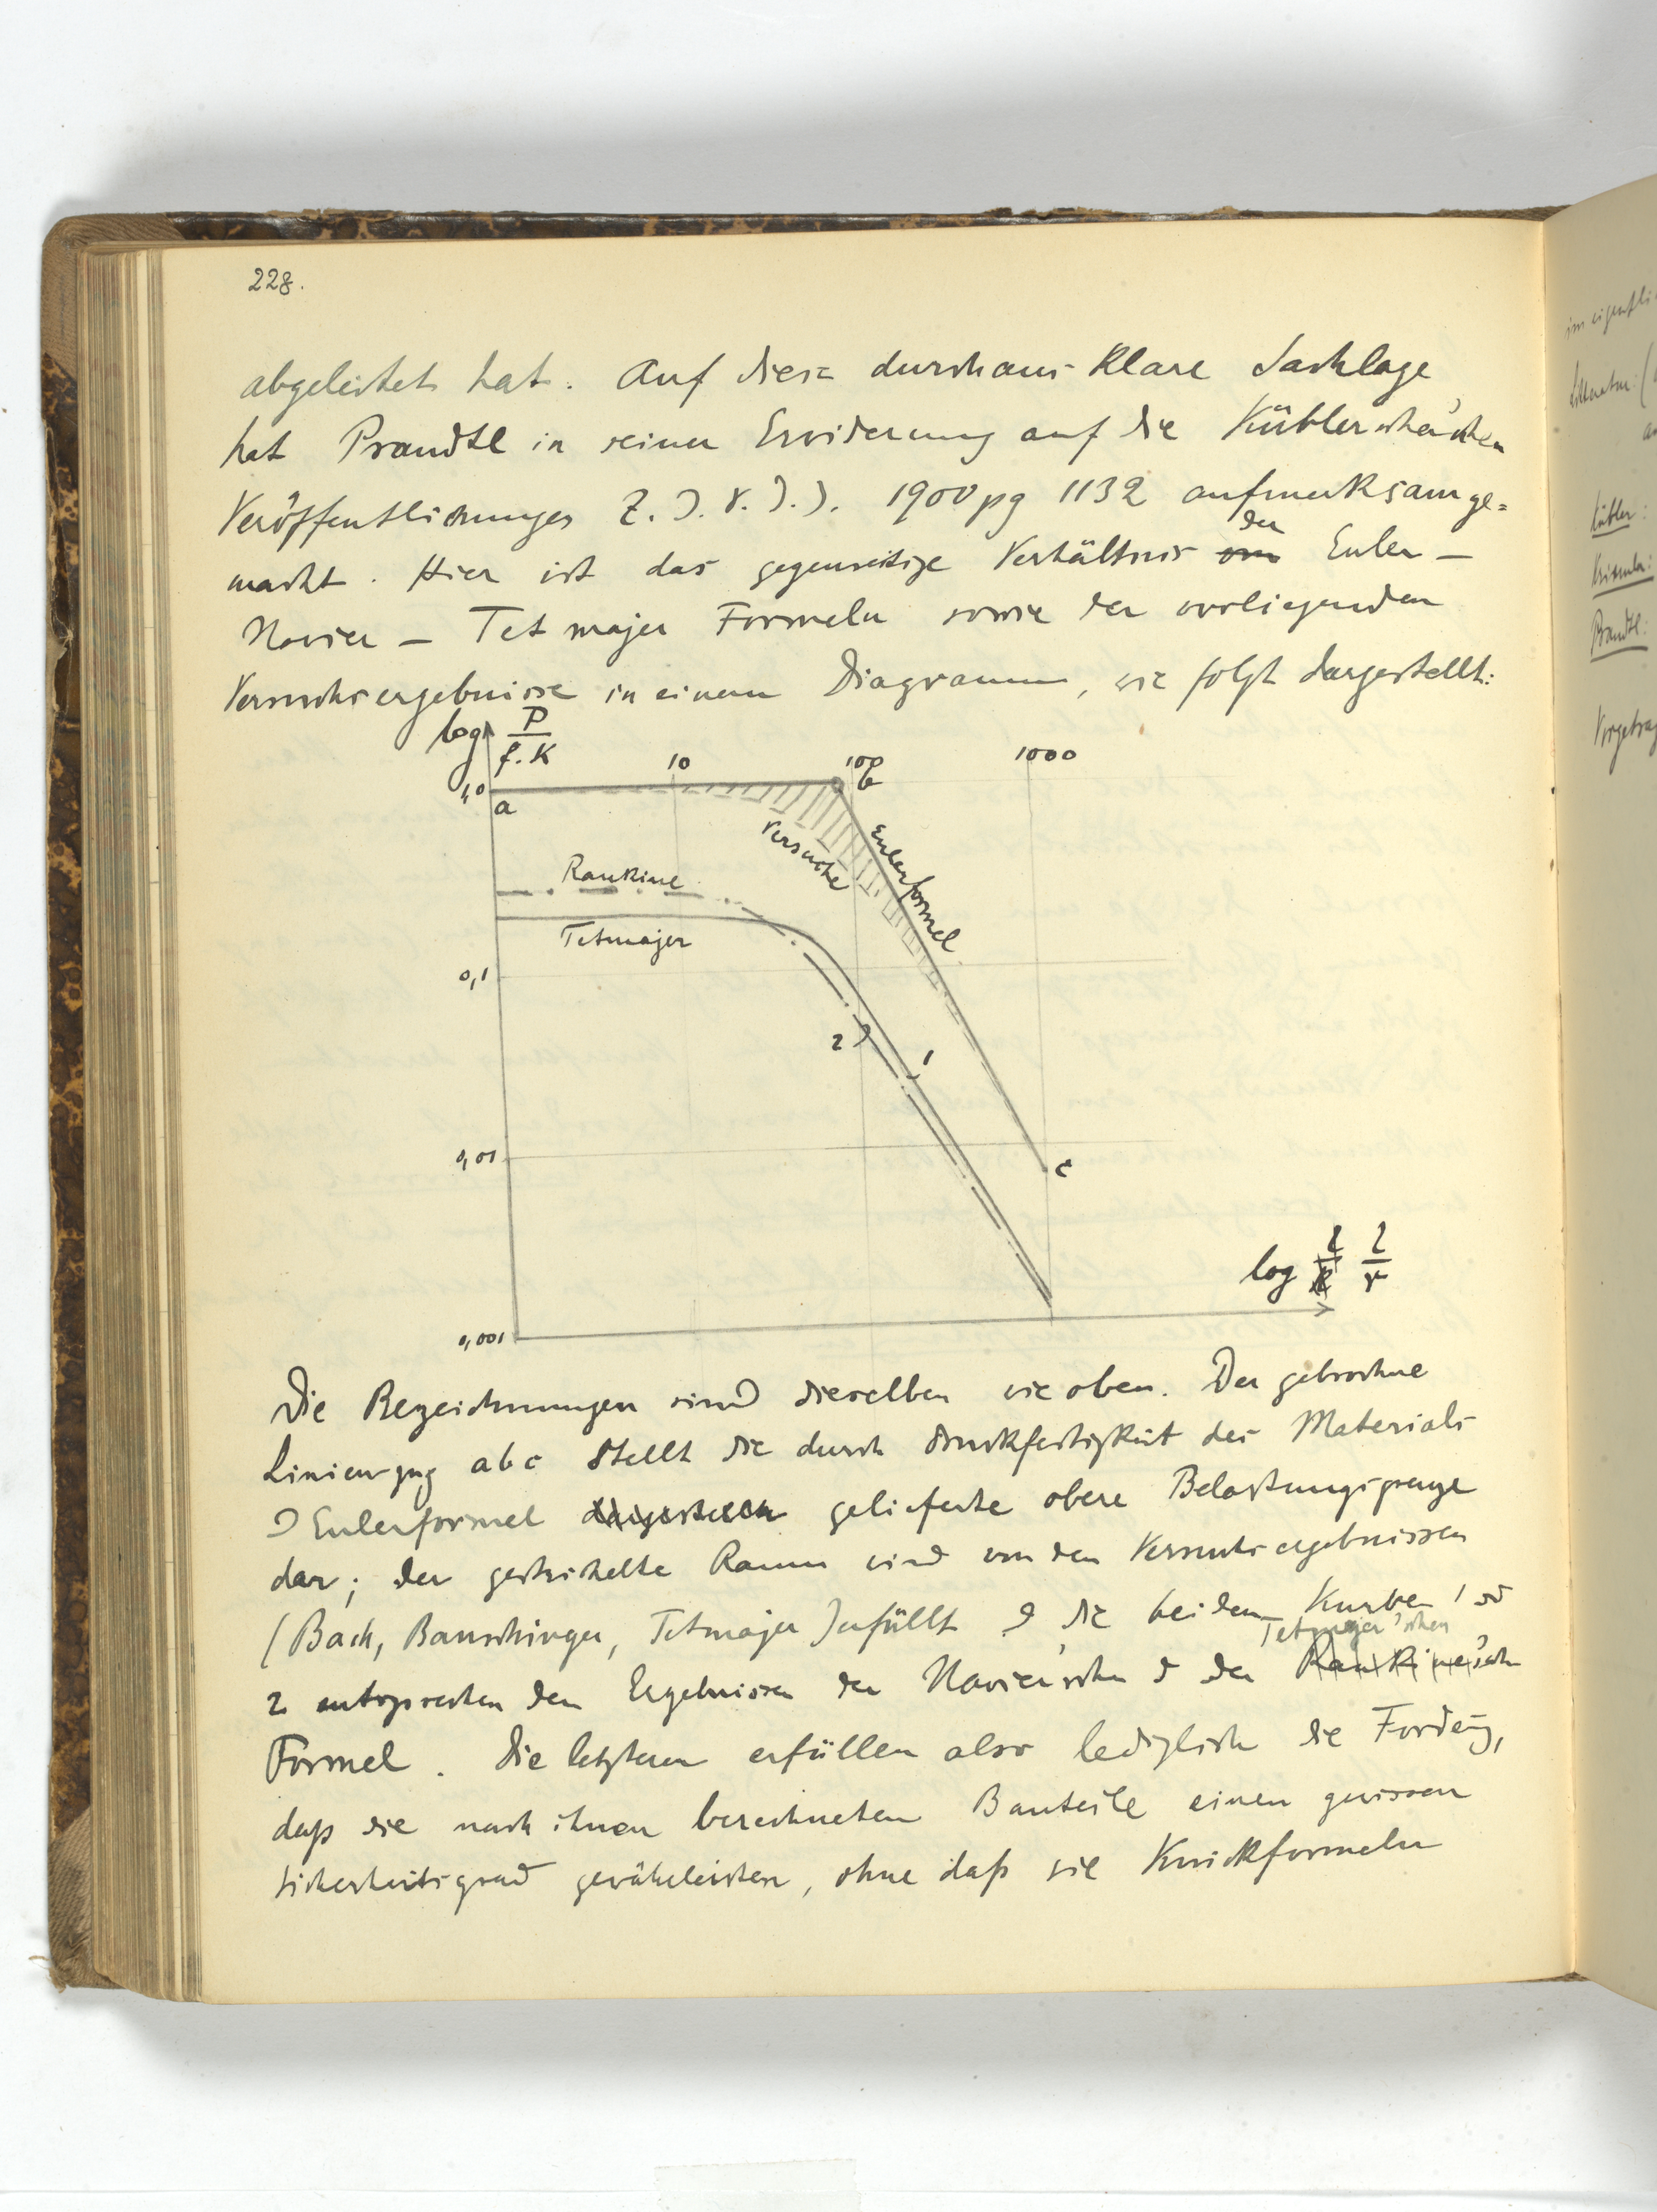 228.
abgeleitet hat. Auf diese durchaus klare Sachlage
hat Prandtl in seiner Erwiderung auf die Kübler'schen
Veröffentlichungen Z. d. V. d. J. 1900 pg 1132 aufmerksam ge=
macht. Hier ist das gegenseitige Verhältnis der Euler –
Navier – Tetmajer Formeln sowie der vorliegenden
Versuchsergebnisse in einem Diagramm, wie folgt dargestellt:
log P/f.K
10
100
1000
1,0
a
b
Versuche
Eulerformel
Rankine
Tetmajer
0,1
2
1
0,01
c
log l/r
0,001
Die Bezeichnungen sind dieselben wie oben. Der gebrochne
Linienzug abc stellt die durch Druckfestigkeit des Materials
& Eulerformel gelieferte obere Belastungsgrenze
dar; der gestrichelte Raum wird von den Versuchsergebnissen
(Bach, Bauschinger, Tetmajer) erfüllt & die beiden Kurven 1 &
Tetmajer'schen
2 entsprechen den Ergebnissen der Navier'schen & der Rankine'schen
Formel. Die letzteren erfüllen also lediglich die Forderg,
daß die nach ihnen berechneten Bauteile einen gewissen
Sicherheitsgrad gewährleisten, ohne daß sie Knickformeln
im eigentli
Litteratur: (
Kübler:
Prandtl: